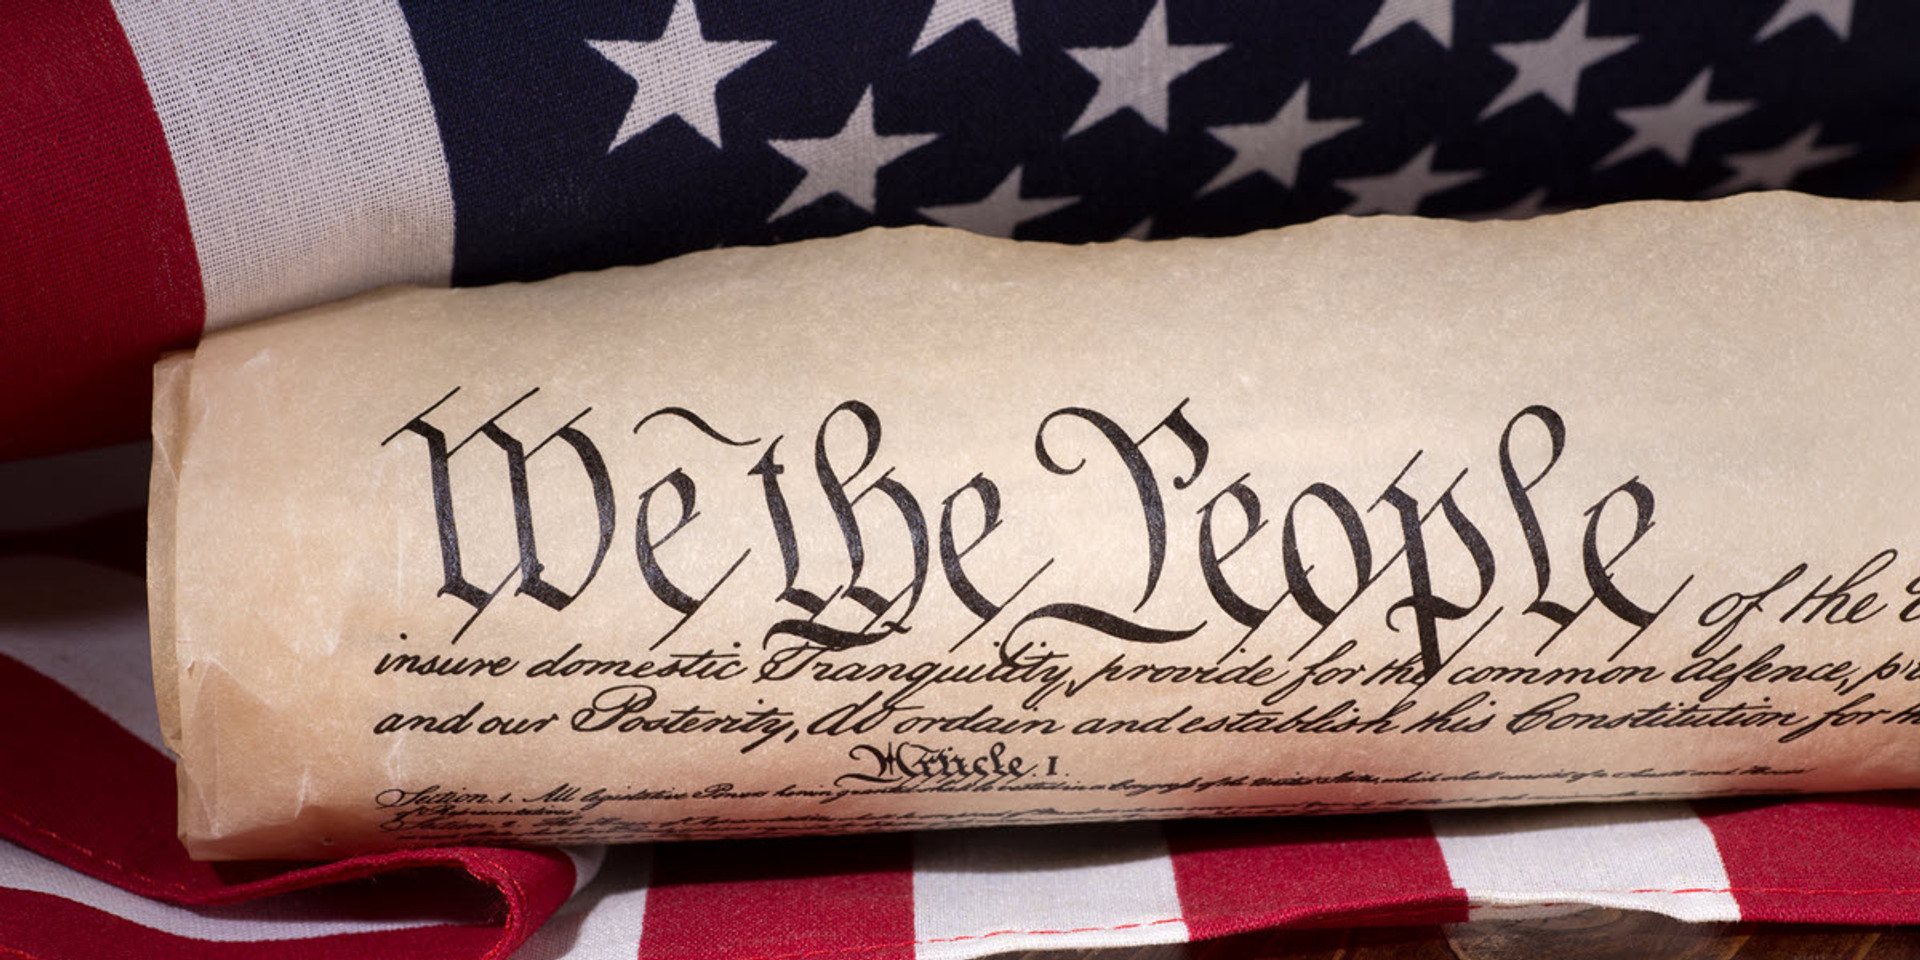 We the People of the
insure domestic Tranquility, provide for the common defence,
and our Posterity, do ordain and establish this Constitution for
Article. I.
Section. 1. All legislative Powers herein granted shall be vested in a Congress of the United States, which shall consist of a Senate and House
of Representatives.
Section. 2.